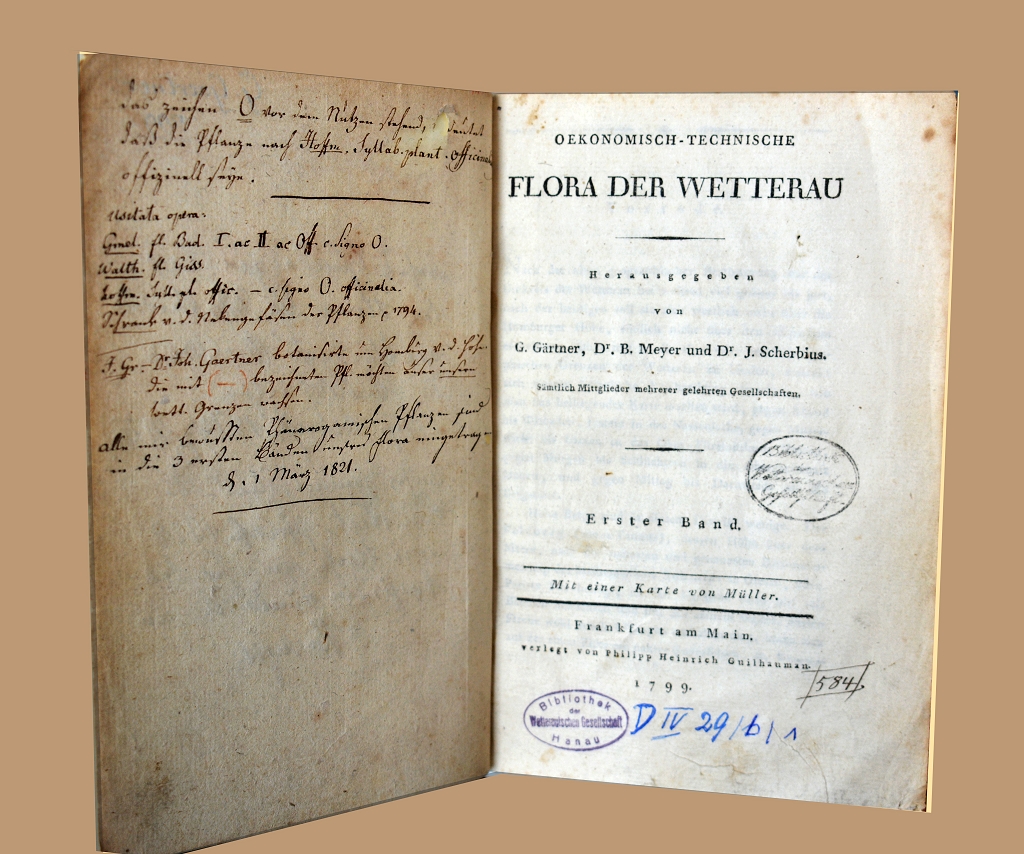 das zeichen O vor dem Nutzen stehend, deutet
daß die Pflanze nach Hoffm. Syllab. plant. officinal
offizinell seye.
usitata opera:
Gmel. fl. Bad. I. ac II ac Off. c. signo O.
Walth. fl. Giss.
Hoffm. Syll. pl. offic. – c. signo O. officinalia.
Schrank v. d. Nebengefäsen der Pflanzen 1794.
F. Gr – Dr. Joh. Gaertner botanisirte um Homburg v. d. Höhe
die mit (—) bezeichneten Pfl. möchten auser unsern
wett. Grenzen wachsen.
alle mir bewußten Phänerogamischen Pflanzen sind
in die 3 ersten Bänden unsrer flora eingetragen
d. 1 März 1821.
OEKONOMISCH-TECHNISCHE
FLORA DER WETTERAU
Herausgegeben
von
G. Gärtner, Dr. B. Meyer und Dr. J. Scherbius.
Sämtlich Mittglieder mehrerer gelehrten Gesellschaften.
Bibliothek
Wetterauischen
Gesellschaft
Erster Band.
Mit einer Karte von Müller.
Frankfurt am Main,
verlegt von Philipp Heinrich Guilhauman.
1799.
584
Bibliothek
der
Wetterauischen Gesellschaft
Hanau
D IV 29/b/1